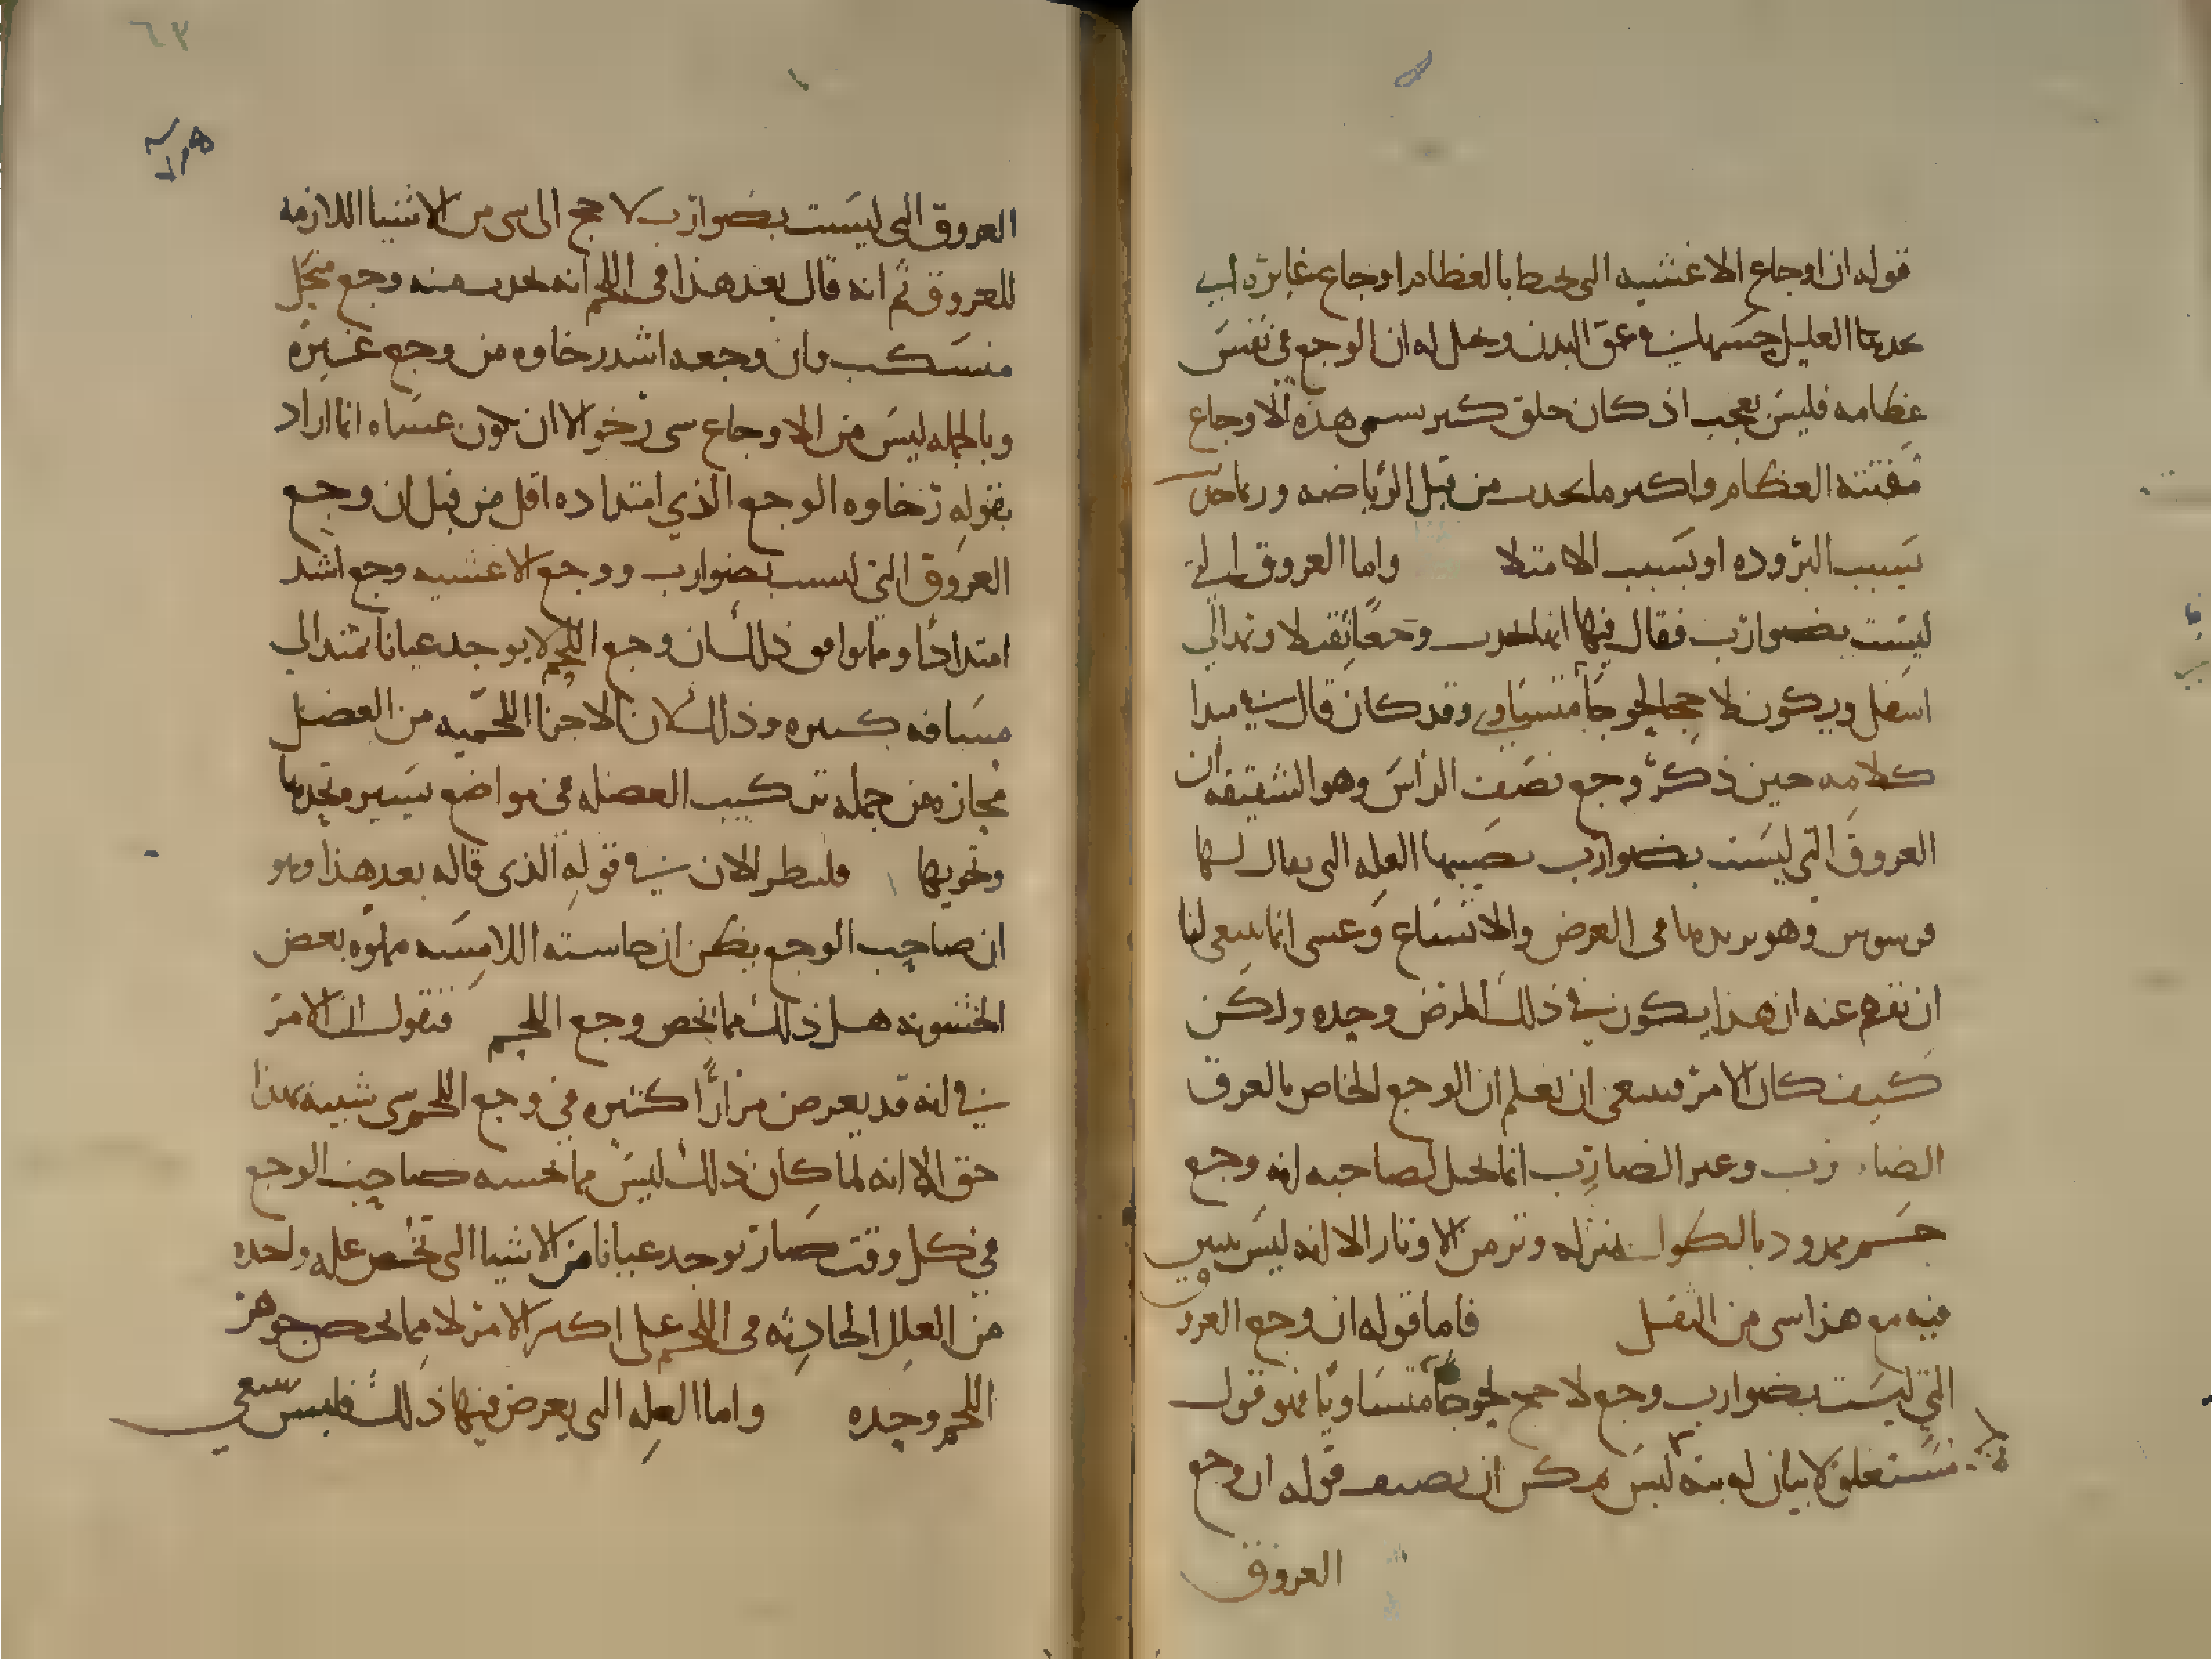 قوله ان اوجاع الاغشيه التى تحيط بالعظام اوجاع غايره اى
يحدثها العليل حسها فى عمق البدن وتخيل له ان الوجع فى نفس
عظامه فليس بعجب اذ كان خلق كثير يسمى هذه الاوجاع
مفتته العظام واكثر ما يحدث من قبل الرياضه وربما حدث
بسبب البروده او بسبب الامتلا واما العروق التى
ليست بضوارب فقال فيها انها تحدث وجعًا ثقيلا وتمد الى
اسفل ويكون لاحجا لحوجا متساوى وقد كان قال فى مبدا
كلامه حين ذكر وجع نصف الراس وهو الشقيقه ان
العروق التى ليست بضوارب تصيبها العله التى يقال لها
وهو يريد بها فى العرض والاتساع وعسى انما ينبغى لنا
ان نفهم عنه ان هذا يكون فى ذلك المرض وحده ولكن
كيف كان الامر فينبغى ان نعلم ان الوجع الخاص بالعرق
الضارب وغير الضارب انما تخيل لصاحبه انه وجع
جسم ممدود بالطول بمنزله وتر من الاوتار الا انه ليس يتبين
فيه مع هذا شى من الثقل فاما قوله ان وجع العروق
التى ليست بضوارب وجع لاحج لحوجا متساويا فهو قول
مستغلق لا بيان له لانه ليس يمكن ان نصف قوله ان وجع
العروق
٦٣
العروق التى ليست بضوارب لاحج الى شى من الاشيا اللازمه
للعروق ثم انه قال بعد هذا فى اللحم انه يحدث منه وجع متحل
منسكب وان وجعه اشد رخاوه من وجع غيره
وبالجمله ليس من الاوجاع شى رخو الا ان يكون عساه انما اراد
بقوله رخاوه الوجع الذي امتداده اقل من قبل ان وجع
العروق التى ليست بضوارب ووجع الاغشيه وجع اشد
امتدادًا ومما يوافق ذلك ان وجع اللحم لا يوجد عيانا يمتد الى
مسافه كثيره وذلك لان الاجزا اللحميه من العضل
مجازه من جمله تركيب العضله فى مواضع يسير
وتحويها فلينظر الان فى قوله الذى قاله بعد هذا وهو
ان صاحب الوجع يظن ان حاسته اللامسه مملوه بعض
الخشونه هل ذلك مما يخص وجع اللحم فنقول ان الامر
فى انه قد يعرض مرارًا كثيره فى وجع اللحم شى شبيه بهذا
حق الا انه لما كان ذلك ليس مما يحسه صاحب الوجع
فى كل وقت صار يوجد عيانا من الاشيا التى تخص عله واحده
من العلل الحادثه فى اللحم على اكثر الامر لا مما يخص جوهر
اللحم وحده واما العله التى يعرض فيها ذلك فليس ينبغى